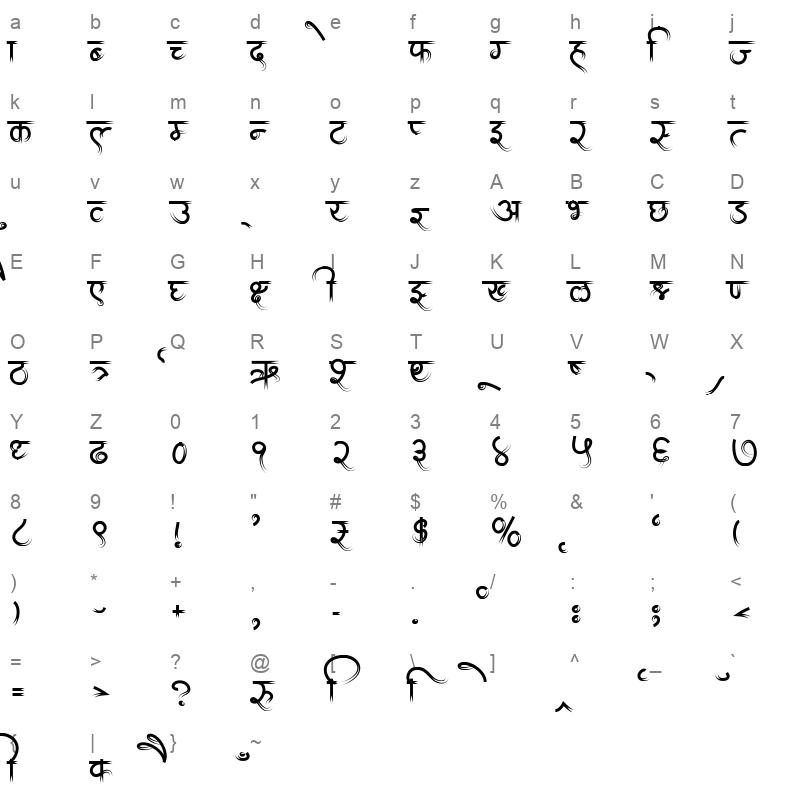 a b c d e f g h i j
ा ब च द े फ ग ह ि ज
k l m n o p q r s t
क ल म न ट प इ र स त
u v w x y z A B C D
ु व उ ् य श्र अ भ छ ड
E F G H I J K L M N
ै ए घ क्ष ी झ ख ळ ण
O P Q R S T U V W X
ठ त्र ृ ऋ श थ ू ष
Y Z 0 1 2 3 4 5 6 7
ध ढ ० १ २ ३ ४ ५ ६ ७
8 9 ! " # $ % & ' (
८ ९ ! ’ $ % ‘ (
) * + , - . / : ; <
) + , - . ॰ : ; <
= > ? @ [ \ ] ^ _ `
= > ? रु ि ि ^
{ | } ~
ी क